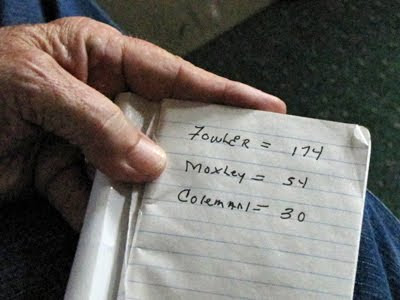 FowLER = 174
Moxley = 54
Coleman = 30